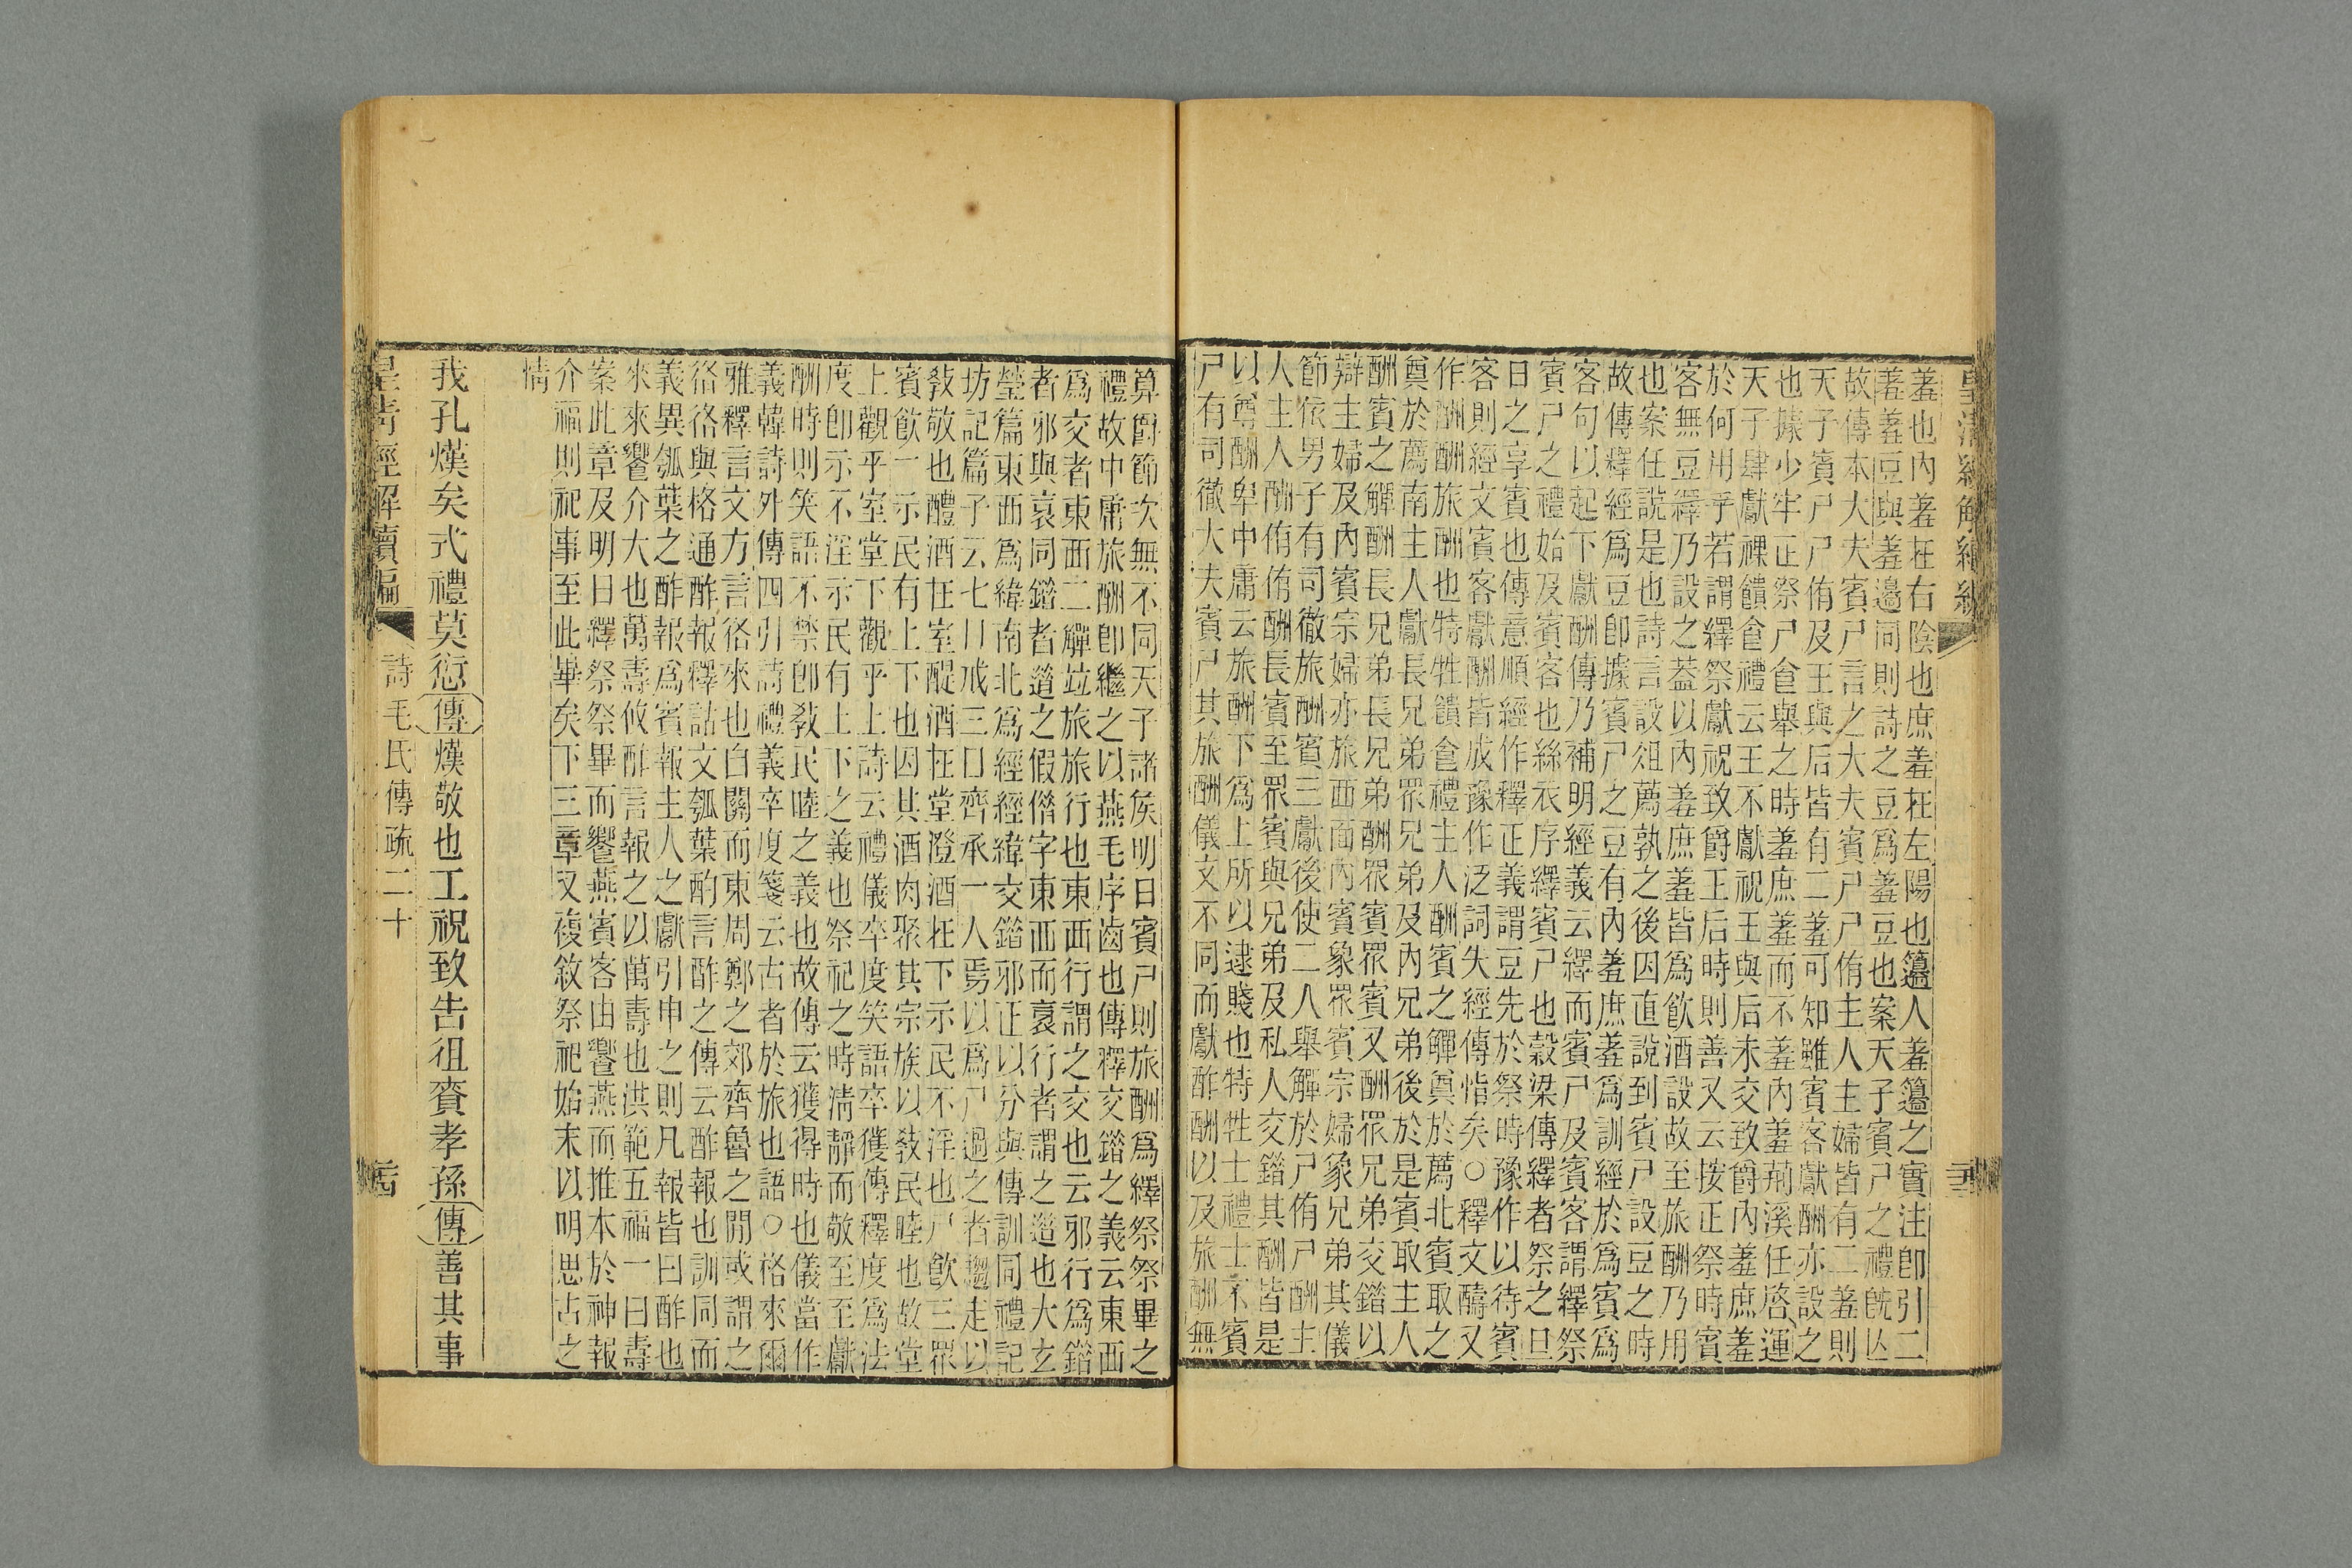 羞也內羞在右陰也庶羞在左陽也籩人羞籩之實注卽引二
羞羞豆與羞邊同則詩之豆爲羞豆也案天子賓尸之禮旣亡
故傳本大夫賓尸言之大夫賓尸尸侑主人主婦皆有二羞則
天子賓尸尸侑及王與后皆有二羞可知雖賓客獻酬亦設之
也據少牢正祭尸食舉之時羞庶羞而不羞內羞荊溪任啓運
天子肆獻祼饋食禮云王不獻祝王與后未交致爵內羞庶羞
於何用乎若謂繹祭獻祝致爵王后時則善又云按正祭時賓
客無豆繹乃設之葢以內羞庶羞皆爲飮酒設故至旅酬乃用
也案任說是也詩言設俎薦孰之後因直說到賓尸設豆之時
故傳釋經爲豆卽據賓尸之豆有內羞庶羞爲訓經於爲賓爲
客句以起下獻酬傳乃補明經義云繹而賓尸及賓客謂繹祭
賓尸之禮始及賓客也絲衣序繹賓尸也穀梁傳繹者祭之旦
日之享賓也傳意順經作釋正義謂豆先於祭時豫作以待賓
客則經文賓客獻酬皆成豫作泛詞失經傳恉矣○釋文醻又
作酬酬旅酬也特牲饋食禮主人酬賓之觶奠於薦北賓取之
奠於薦南主人獻長兄弟眾兄弟及內兄弟後於是賓取主人
酬賓之觶酬長兄弟長兄弟酬眾賓眾賓又酬眾兄弟交錯以
辯主婦及內賓宗婦亦旅西面內賓象眾賓宗婦象兄弟其儀
節依男子有司徹旅酬賓三獻後使二人舉觶於尸侑尸酬主
人主人酬侑侑酬長賓至眾賓與兄弟及私人交錯其酬皆是
以尊酬卑中庸云旅酬下爲上所以逮賤也特牲士禮士不賓
尸有司徹大夫賓尸其旅酬儀文不同而獻酢酬以及旅酬無
算爵節次無不同天子諸侯明日賓尸則旅酬爲繹祭祭畢之
禮故中庸旅酬卽繼之以燕毛序齒也傳釋交錯之義云東西
爲交者東西二觶竝旅旅行也東西行謂之交也云邪行爲錯
者邪與衺同錯者䢒之假僭字東西而衺行者謂之䢒也大玄
瑩篇東西爲緯南北爲經經緯交錯邪正以分與傳訓同禮記
坊記篇子云七日戒三日齊承一人焉以爲尸過之者趨走以
敎敬也醴酒在室醍酒在堂澄酒在下示民不淫也尸飮三眾
賓飮一示民有上下也因其酒肉聚其宗族以敎民睦也故堂
上觀乎室堂下觀乎上詩云禮儀卒度笑語卒獲傳釋度爲法
度卽示不淫示民有上下之義也祭祀之時淸靜而敬至至獻
酬時則笑語不禁卽敎民睦之義也故傳云獲得時也儀當作
義韓詩外傳四引詩禮義卒度箋云古者於旅也語○格來爾
雅釋言文方言㣟來也自關而東周鄭之郊齊魯之閒或謂之
㣟㣟與格通酢報釋詁文瓠葉酌言酢之傳云酢報也訓同而
義異瓠葉之酢報爲賓報主人之獻引申之則凡報皆曰酢也
來來饗介大也萬壽攸酢言報之以萬壽也洪範五福一曰壽
案此章及明日繹祭祭畢而饗燕賓客由饗燕而推本於神報
介福則祀事至此畢矣下三章又複敘祭祀始末以明思古之
情
我孔熯矣式禮莫愆傳熯敬也工祝致吿徂賚孝孫傳善其事
皇淸經解續編 詩毛氏傳疏二十